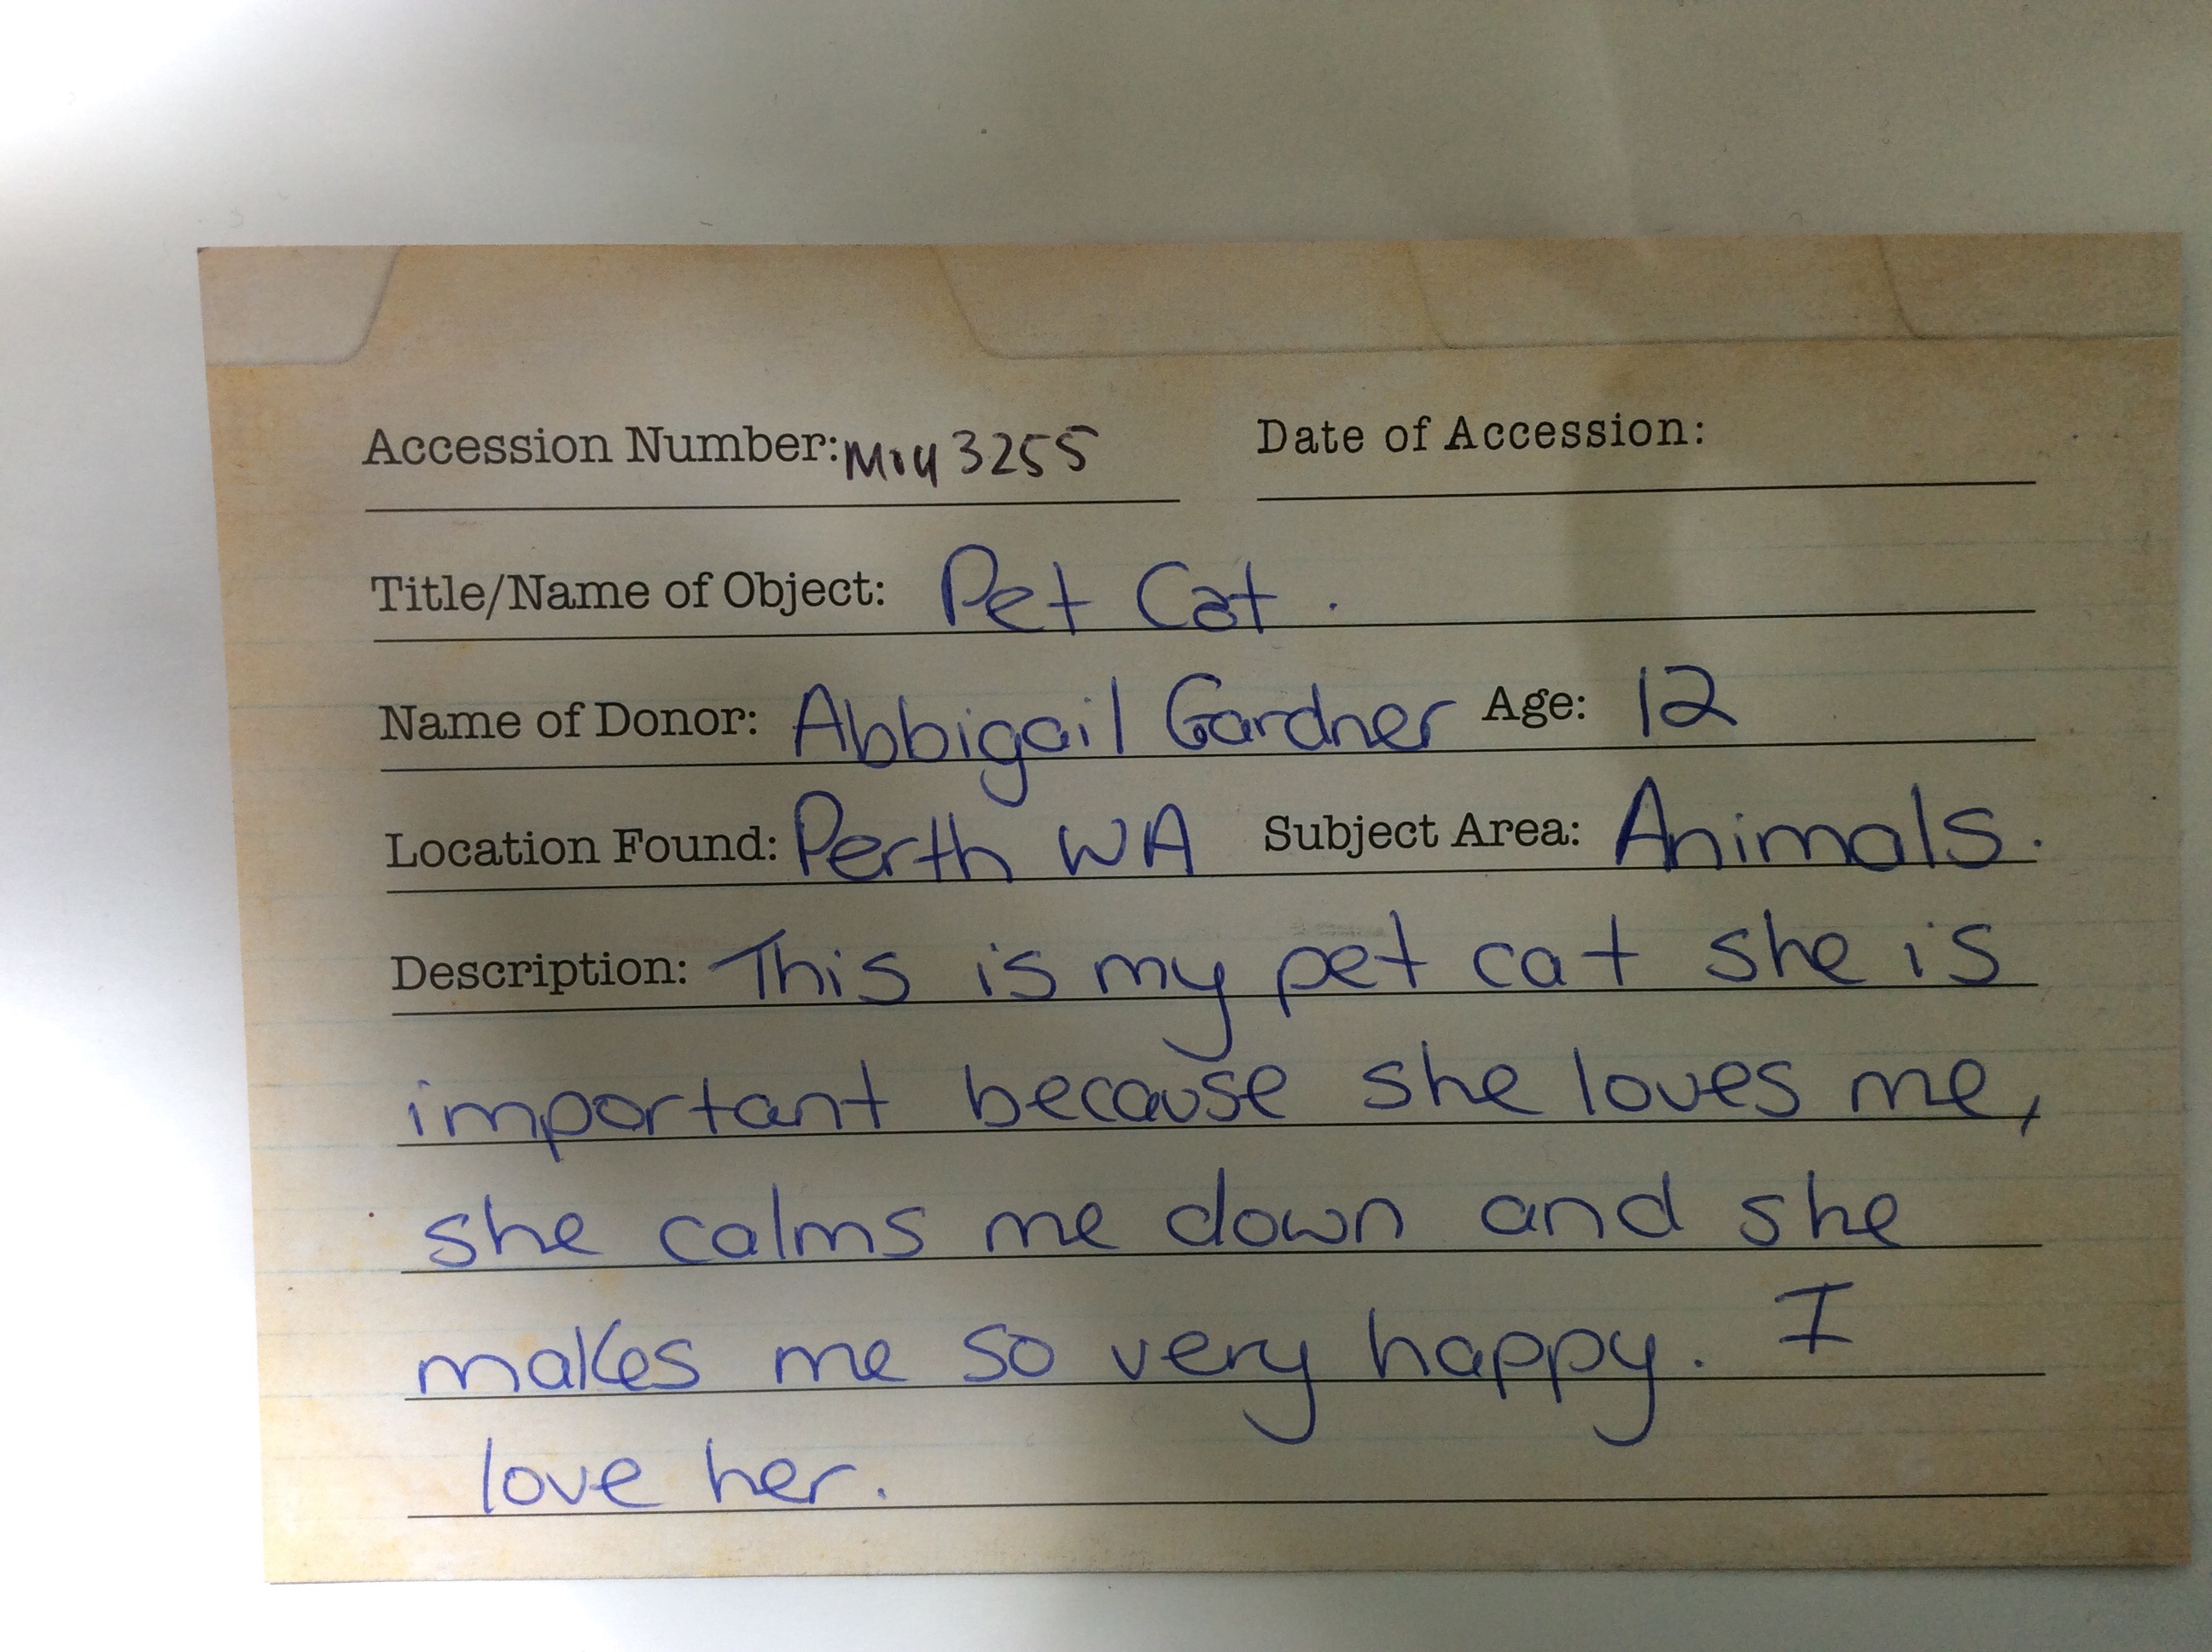 Accession Number: M143255 Date of Accession:
Title/Name of Object: Pet Cat.
Name of Donor: Abbigail Gardner Age: 12
Location Found: Perth WA Subject Area: Animals.
Description: This is my pet cat she is
important because she loves me,
she calms me down and she
makes me so very happy. I
love her.